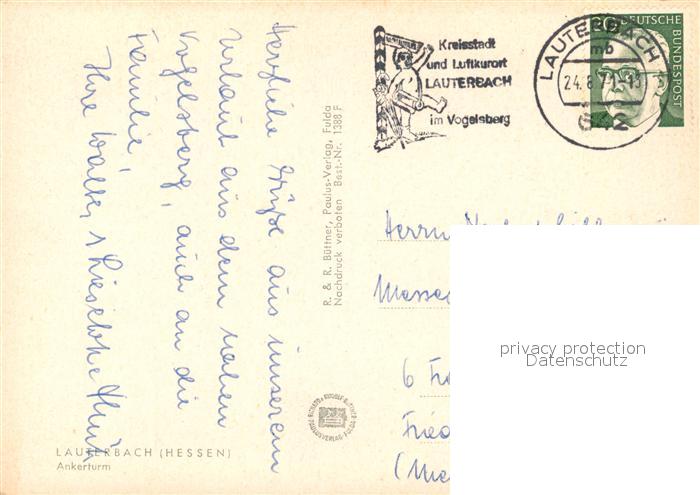 Herzliche Grüße aus unserem
Urlaub aus dem nahen
Vogelsberg, auch an die
Familie,
Ihre Walter + Lieselotte
R. & R. Büttner, Paulus-Verlag, Fulda
Nachdruck verboten Best.-Nr. 1388 F
LAUTERBACH (HESSEN)
Ankerturm
Kreisstadt
und Luftkurort
LAUTERBACH
im Vogelsberg
LAUTERBACH
mb
24.8.71-13
642
30 DEUTSCHE
BUNDESPOST
Herrn
Messe
6 Fr
Fried
(Me
privacy protection
Datenschutz